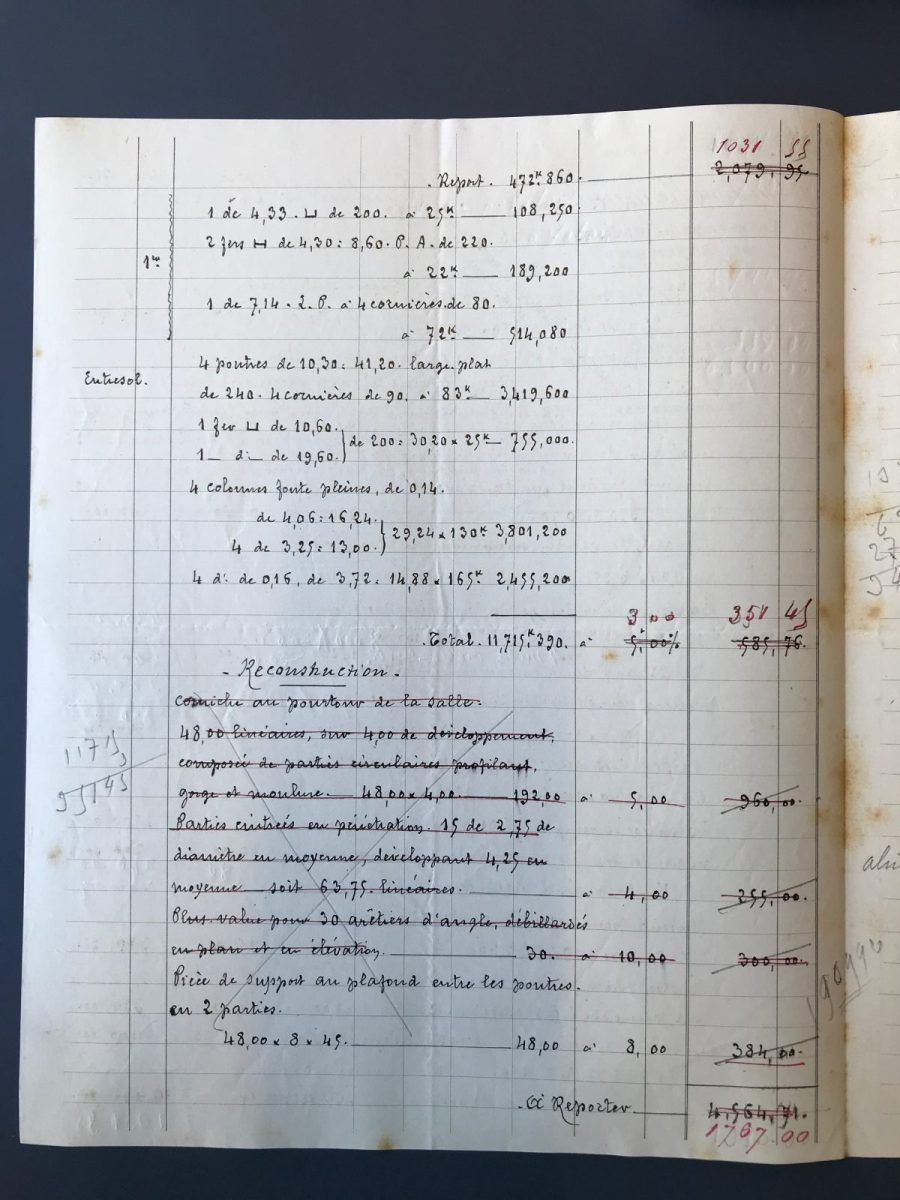 1031 55
Report. 472ᵏ860. 2,079,95
1 de 4,33. ⊔ de 200. à 25ᵏ 108,250
2 fers ⊔ de 4,30 = 8,60. P. A. de 220.
1er
à 22ᵏ 189,200
1 de 7,14. 2. P. à 4 cornières. de 80.
à 72ᵏ 514,080
4 poutres de 10,30 = 41,20. large plat
Entresol.
de 240. 4 cornières de 90. à 83ᵏ 3,419,600
1 fer ⊔ de 10,60.
de 200 = 30,20 × 25ᵏ 755,000.
1 _ d° _ de 19,60.
4 colonnes fonte pleines, de 0,14.
de 4,06 = 16,24.
29,24 × 130ᵏ 3,801,200
4 de 3,25 = 13,00.
4 d° de 0,16, de 3,72 = 14,88 × 165ᵏ 2,455,200
3 00 351 45
Total. 11,715,ᵏ390. à 5,00% 585,76.
- Reconstruction -
corniche au pourtour de la salle.
48,00 linéaires, sur 4,00 de développement,
1175
composée de parties circulaires profilant,
gorge et moulure. 48,00 × 4,00. 192,00 à 5,00 960,00.
Parties cintrées en pénétration. 15 de 2,75 de
diamètre en moyenne, développant 4,25 en
moyenne soit 63,75. linéaires. à 4,00 255,00.
Plus-value pour 30 arêtiers d'angle, débillardés
en plan et en élévation. 30. à 10,00 300,00.
Pièce de support au plafond entre les poutres.
en 2 parties.
48,00 × 8 × 45. 48,00 à 8,00 384,00.
A Reporter 4,564,71.
1767.00